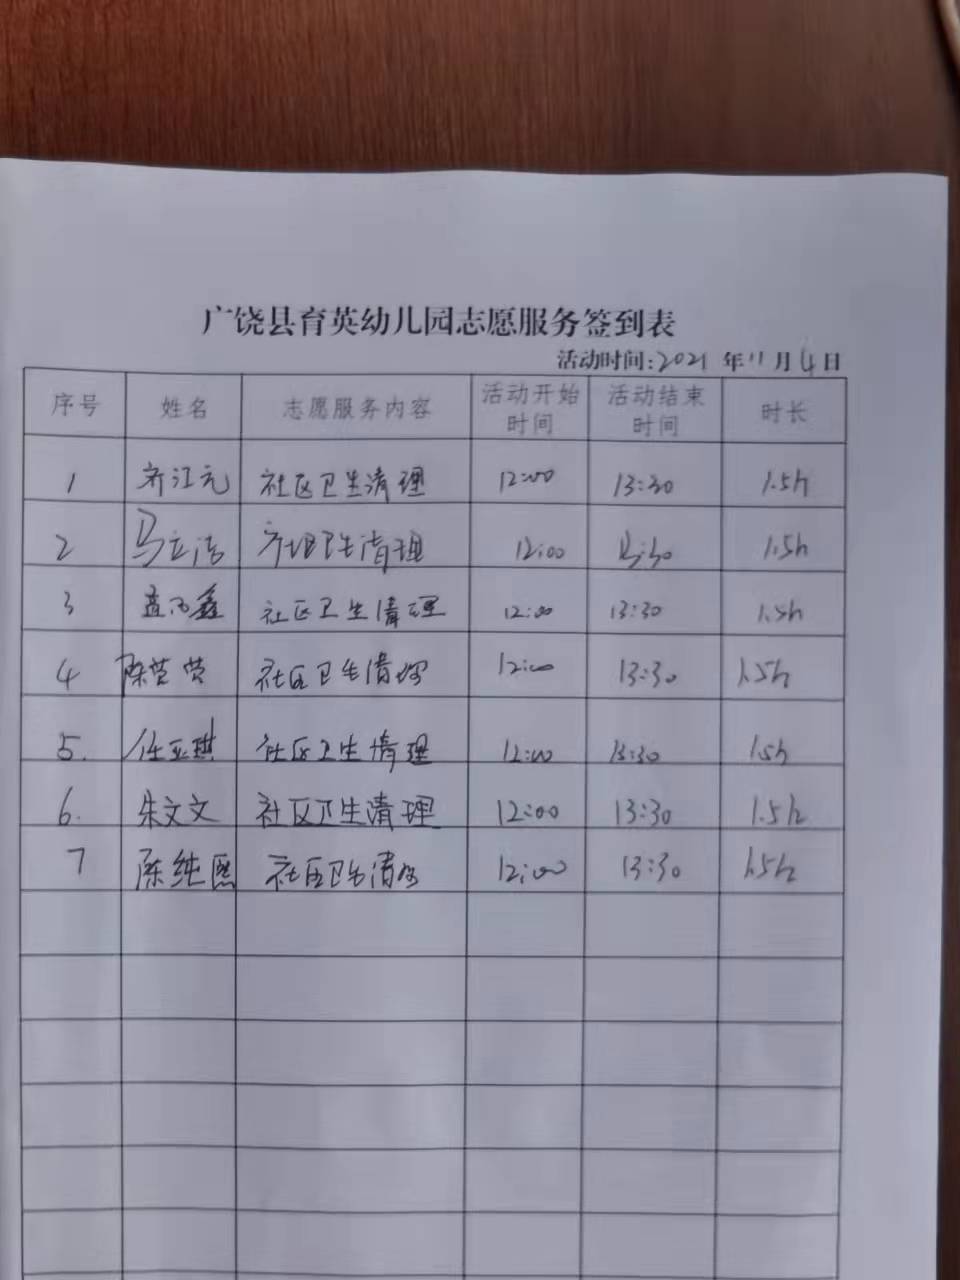 广饶县育英幼儿园志愿服务签到表
活动时间:2021 年 11 月 4 日
序号 姓名 志愿服务内容 活动开始时间 活动结束时间 时长
1 齐江元 社区卫生清理 12:00 13:30 1.5h
2 马立洁 社区卫生清理 12:00 13:30 1.5h
3 社区卫生清理 12:00 13:30 1.5h
4 陈营营 社区卫生清理 12:00 13:30 1.5h
5. 任亚琪 社区卫生清理 12:00 13:30 1.5h
6. 朱文文 社区卫生清理 12:00 13:30 1.5h
7 陈纯熙 社区卫生清理 12:00 13:30 1.5h